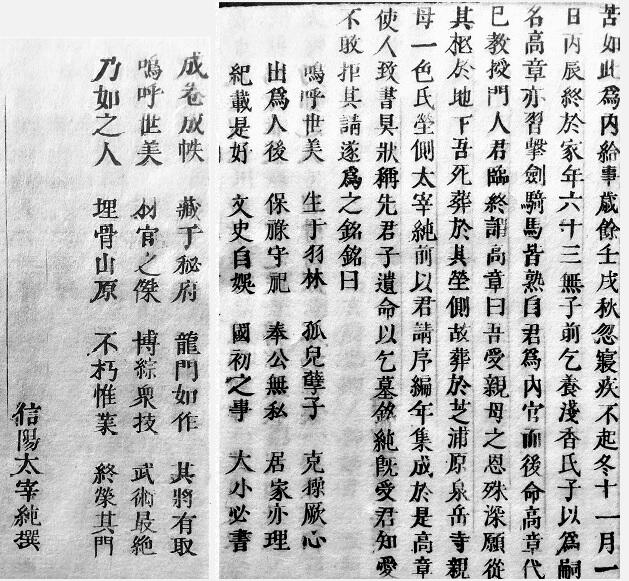 苦如此爲内給事歲餘壬戌秋忽寢疾不起冬十一月一
日丙辰終於家年六十三無子前乞養淺香氏子以爲嗣
名高章亦習擊劍騎馬皆熟自君爲内官而後命高章代
己教授門人君臨終謂高章曰吾受親母之恩殊深願從
其柩於地下吾死葬於其塋側故葬於芝浦原泉岳寺親
母一色氏塋側太宰純前以君請序編年集成於是高章
使人致書具狀稱先君子遺命以乞墓銘純旣受君知愛
不敢拒其請遂爲之銘銘曰
嗚呼世美 生于羽林 孤兒孽子 克操厥心
出爲人後 保祿守祀 奉公無私 居家亦理
紀載是好 文史自娯 國初之事 大小必書
成卷成帙 藏于秘府 龍門如作 其將有取
嗚呼世美 羽官之傑 博綜衆技 武術最絶
乃如之人 埋骨山原 不朽惟業 終榮其門
信陽太宰純撰